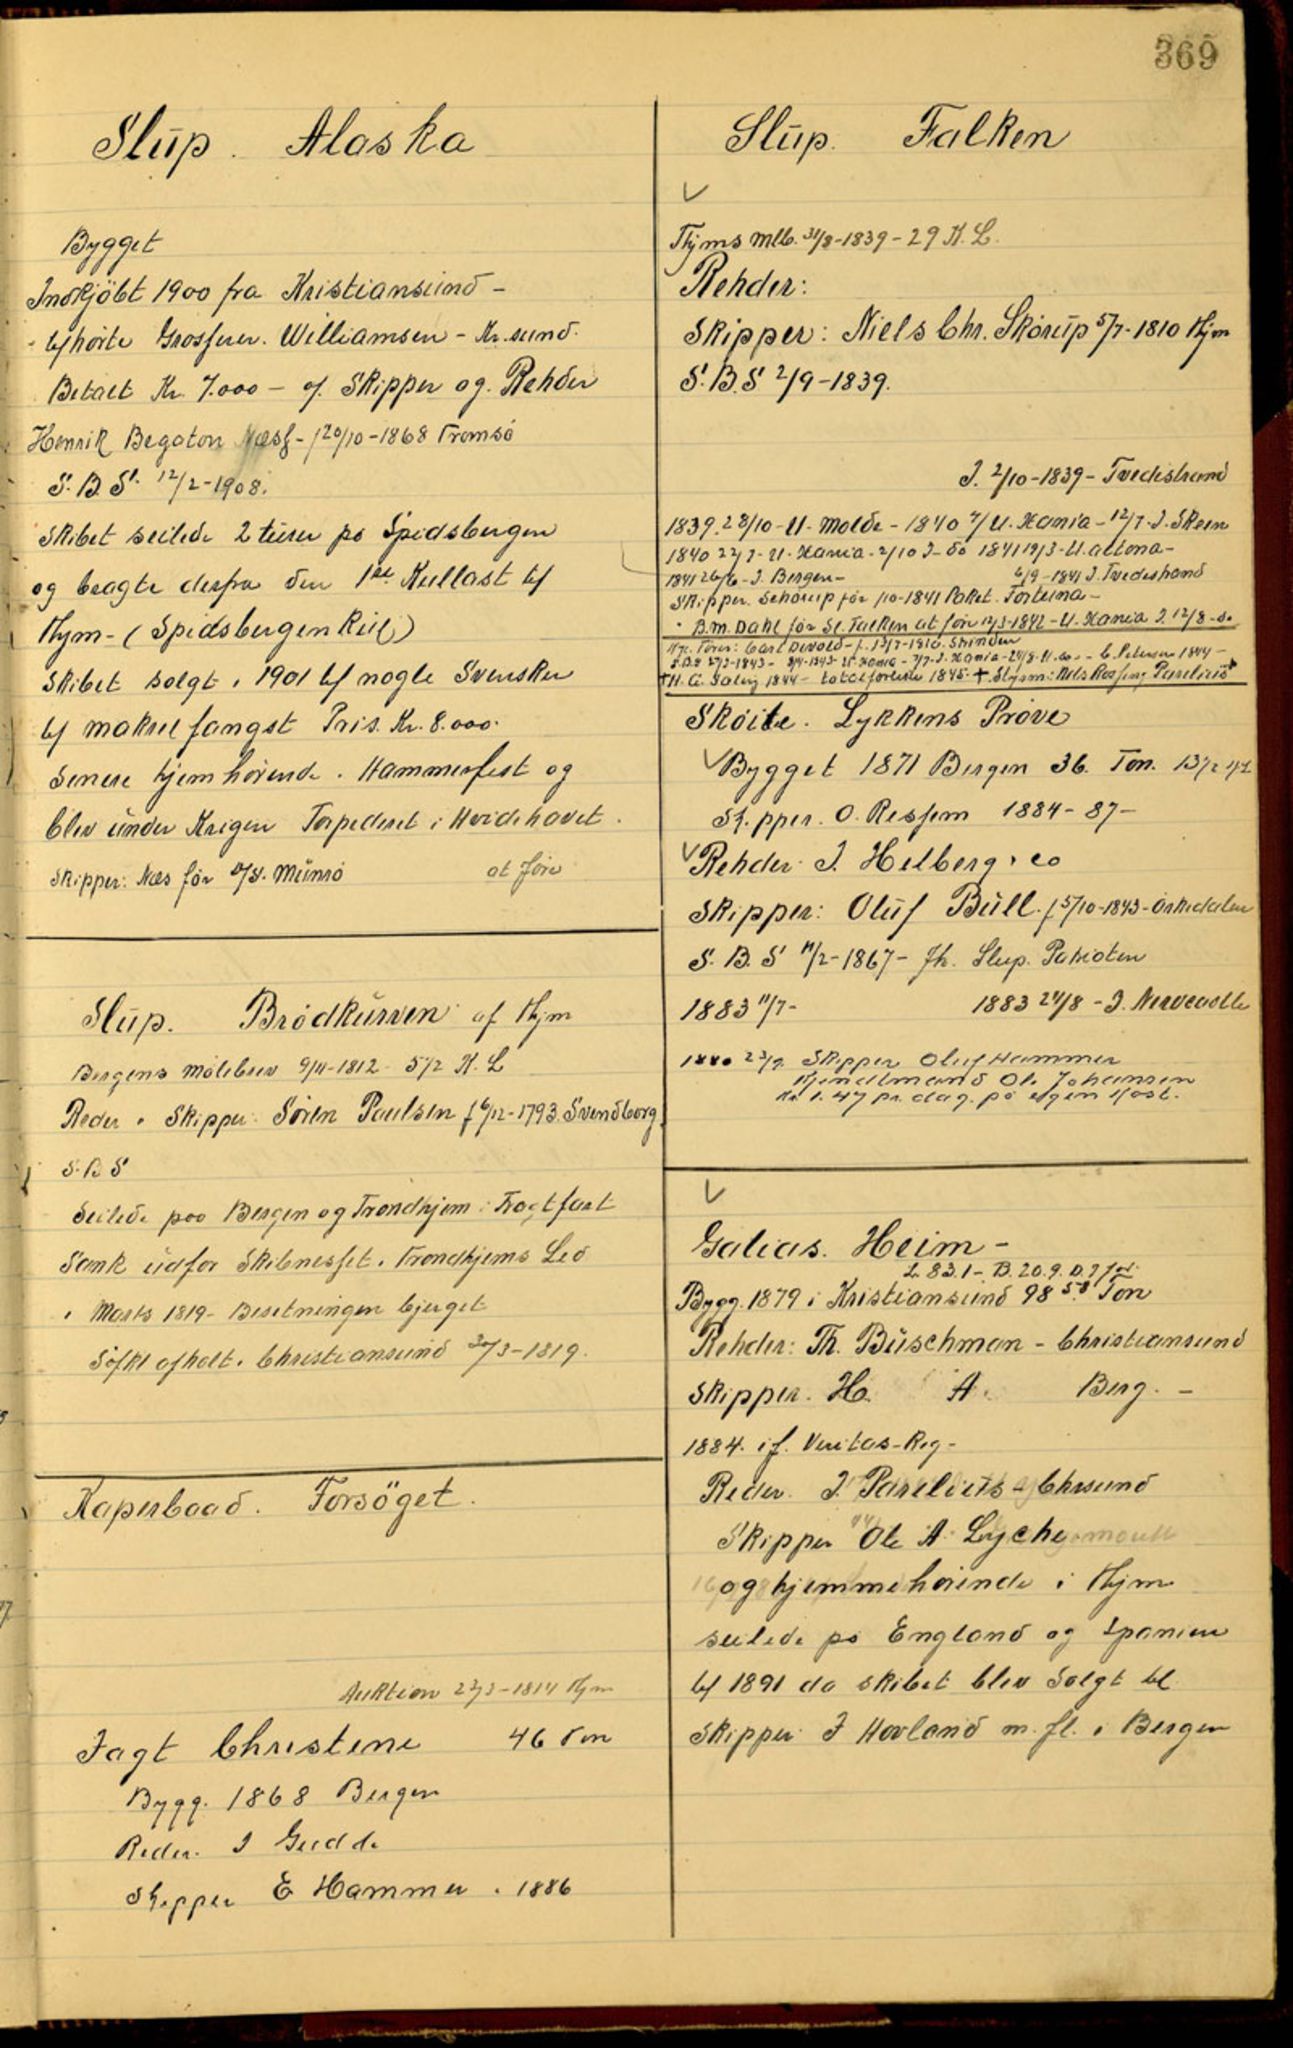 369
Slup. Alaska
Bygget
Indkjöbt 1900 fra Kristiansund -
tilhörte Grosserer. Williamsen - Kr.sund.
Betalt Kr. 7.000 - af Skipper og Rehder
Henrik Begoton Næss - f 20/10-1868 Tromsö
S. B. S. 12/2-1908.
Skibet seilede 2 turer på Spidsbergen
og bragte derfra den 1ste Kullast til
Thjm - (Spidsbergen Kul)
Skibet solgt i 1901 til nogle Svensker
til makrel fangst Pris. Kr. 8.000.
Senere hjemhörende i Hammerfest og
blev under Krigen Torpederet i Hvidehavet.
Skipper: Næs før D/S. Munro at före
Slup. Brödkurven af Thjm
Bergens Målebrev 9/11-1812 5 1/2 K. L
Reder & Skipper Sören Paulsen f 6/12-1793. Svendborg
S. B S
Seilede paa Bergen og Trondhjem i Fragtfart
Sank udfor Skibnesset i Trondhjems Led
i Marts 1819 - Besetningen bjerget
Söfkl afholt i Christiansund 30/3-1819.
Kaperbaad. Forsöget.
Auktion 23/3-1814 Thjm
Jagt Christene 46 Ton
Bygg. 1868 Bergen
Reder. I Gudde
Skipper E Hammer. 1886
Slup. Falken
Thjms Mlb. 31/8-1839-29 K. L.
Rehder:
Skipper: Niels Chr. Skörup 5/7-1810 Thjm
S. B. S 2/9-1839.
I. 2/10-1839-Tvedestrand
1839. 28/10-U. Molde - 1840 4/ U. Xania - 12/7. I. Skien
1840 22/7-U. Xania. 2/10 I- do 1841 19/3-U. Altona -
1841 26/6-I. Bergen - 6/9-1841 I. Tvedestrand
Skipper. Schörup för /10-1841 Paket. Fortuna -
B. M. Dahl för Sl. Falken at för 12/3-1842-U. Xania I. 12/8-do
Nye. Förer: Carl Devold - f. 13/7-1816.
S. B. S 27/3-1843- 8/4-1843 U. Xania - 7/7-I. Xania - 24/8-U. do - C. Petersen 1844 -
1844 - totalforliste 1845. + Styrm: Nils Rossing Parelius
Sköite. Lykkens Pröve
Bygget 1871 Bergen 36. Ton. 13 1/2
Skipper. O. Ressem 1884-87-
Rehder I. Helberg & co
Skipper: Oluf Bull. f 5/10-1843-Orkedalen
S. B. S 11/2-1867- fh. Slup. Patrioten
1883 11/7- 1883 24/8 - I.
1880 23/9. Skipper Oluf Hammer
Kjendtmand Ole Johansen
Kr 1.47 pr. dag. på egen Kost.
Galias. Heim -
L. 83.1 - B. 20.9. D. 9 fod.
Bygg. 1879 i Kristiansund 98 58 Ton
Rehder: Th. Buschman - Christiansund
Skipper. H. A. Berg. -
1884. if. Veritas-Reg-
Reder. I. Parelius af Chrsund
Skipper Ole A. Lyche
og hjemmehörende i Thjm
seilede på England og Spanien
til 1891 da skibet blev solgt til
Skipper I Hovland m. fl. i Bergen